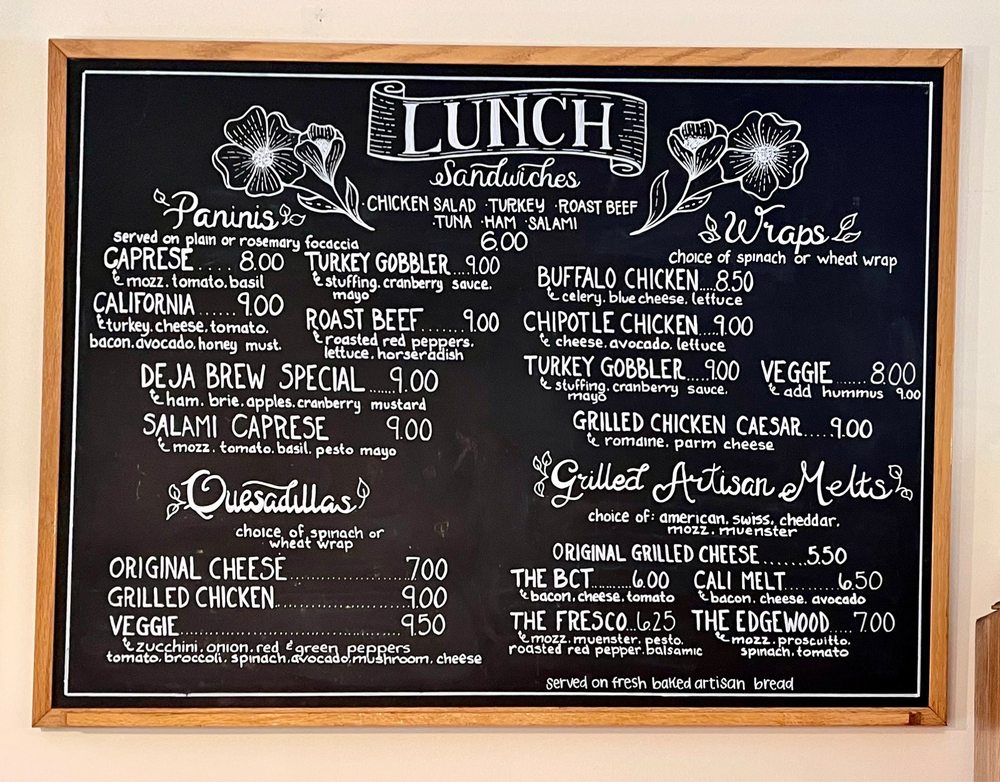 LUNCH
Sandwiches
·CHICKEN SALAD ·TURKEY ·ROAST BEEF
·TUNA ·HAM ·SALAMI
6.00
Paninis
served on plain or rosemary focaccia
CAPRESE..... 8.00
& mozz. tomato. basil
CALIFORNIA.......9.00
& turkey. cheese. tomato.
bacon. avocado. honey must.
TURKEY GOBBLER...9.00
& stuffing. cranberry sauce.
mayo
ROAST BEEF.......9.00
& roasted red peppers.
lettuce. horseradish
DEJA BREW SPECIAL.....9.00
& ham. brie. apples. cranberry mustard
SALAMI CAPRESE 9.00
& mozz. tomato. basil. pesto mayo
Quesadillas
choice of spinach or
wheat wrap
ORIGINAL CHEESE....................7.00
GRILLED CHICKEN....................9.00
VEGGIE....................................9.50
& zucchini. onion. red & green peppers
tomato. broccoli. spinach. avocado. mushroom. cheese
Wraps
choice of spinach or wheat wrap
BUFFALO CHICKEN....8.50
& celery. blue cheese. lettuce
CHIPOTLE CHICKEN....9.00
& cheese. avocado. lettuce
TURKEY GOBBLER....9.00
& stuffing. cranberry sauce.
mayo
VEGGIE.......8.00
& add hummus 9.00
GRILLED CHICKEN CAESAR.....9.00
& romaine. parm cheese
Grilled Artisan Melts
choice of: american. swiss. cheddar.
mozz. muenster
ORIGINAL GRILLED CHEESE.......5.50
THE BCT..........6.00
& bacon. cheese. tomato
CALI MELT........6.50
& bacon. cheese. avocado
THE FRESCO..6.25
& mozz. muenster. pesto.
roasted red pepper. balsamic
THE EDGEWOOD.....7.00
& mozz. proscuitto.
spinach. tomato
served on fresh baked artisan bread